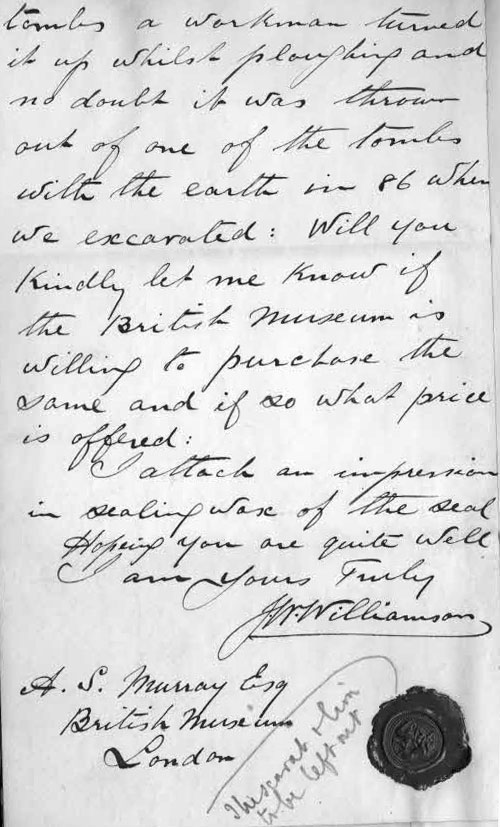 tombs a workman turned
it up whilst ploughing and
no doubt it was thrown
out of one of the tombs
with the earth in 86 when
we excavated: Will you
kindly let me know if
the British Museum is
willing to purchase the
same and if so what price
is offered:
I attach an impression
in sealing wax of the seal
Hoping you are quite well
I am Yours Truly
J.W. Williamson
A. S. Murray Esq
British Museum
London
This scarab
to be left out